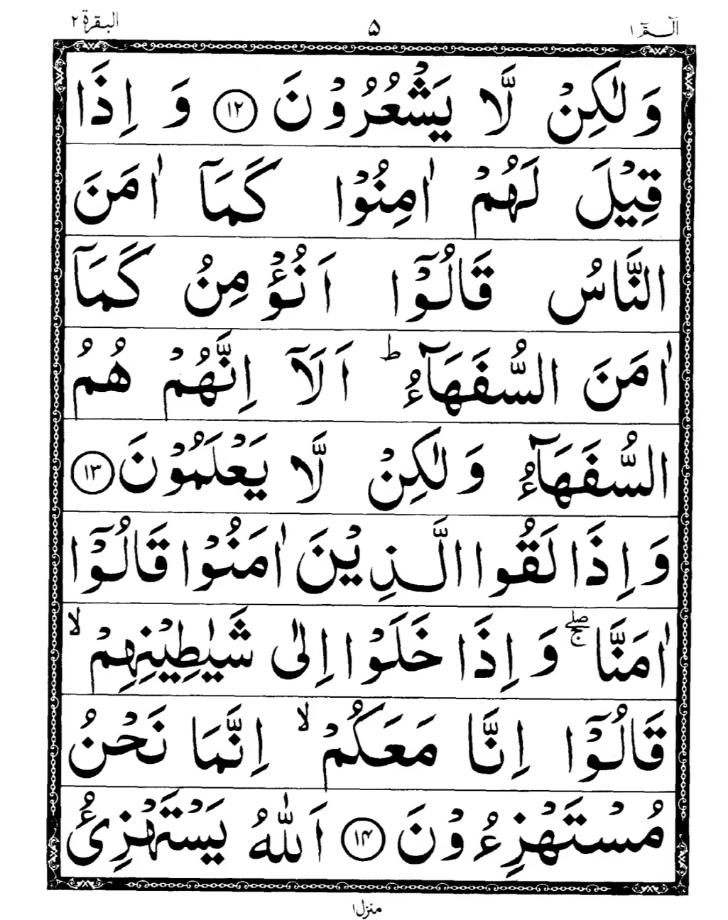 الٓـمّٓ ١ ۵ البقرة ٢
وَلٰكِنْ لَّا يَشْعُرُوْنَ ۝۱۲ وَ اِذَا
قِيْلَ لَهُمْ اٰمِنُوْا كَمَاۤ اٰمَنَ
النَّاسُ قَالُوْۤا اَنُؤْمِنُ كَمَاۤ
اٰمَنَ السُّفَهَآءُ ؕ اَلَاۤ اِنَّهُمْ هُمُ
السُّفَهَآءُ وَلٰكِنْ لَّا يَعْلَمُوْنَ ۝۱۳
وَاِذَا لَقُوا الَّذِيْنَ اٰمَنُوْا قَالُوْۤا
اٰمَنَّا ۖۚ وَ اِذَا خَلَوْا اِلٰى شَيٰطِيْنِهِمْ ۙ
قَالُوْۤا اِنَّا مَعَكُمْ ۙ اِنَّمَا نَحْنُ
مُسْتَهْزِءُوْنَ ۝۱۴ اَللّٰهُ يَسْتَهْزِئُ
منزل ١